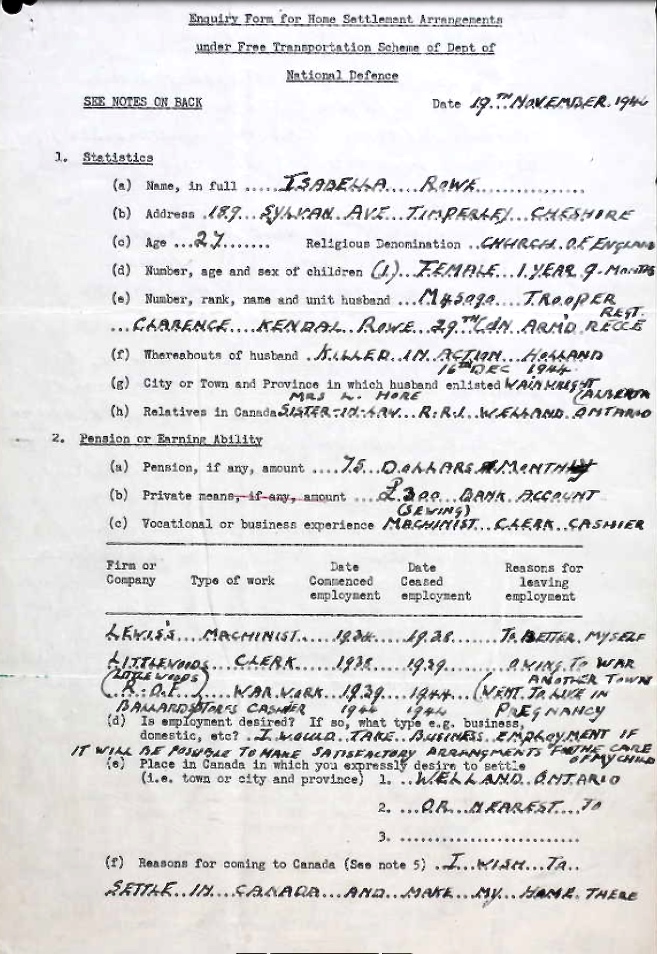 Enquiry Form for Home Settlement Arrangements
under Free Transportation Scheme of Dept of
National Defence
SEE NOTES ON BACK Date 19.TH NOVEMBER.1946
1. Statistics
(a) Name, in full .....ISABELLA.....ROWE................
(b) Address .189...SYLVAN...AVE...TIMPERLEY...CHESHIRE
(c) Age ...27....... Religious Denomination ..CHURCH.OF.ENGLAND
(d) Number, age and sex of children (1)..FEMALE...1.YEAR.9-MONTHS
(e) Number, rank, name and unit husband ...M45090...TROOPER
REGT.
...CLARENCE....KENDAL...ROWE..29TH CDN ARM'D RECCE
(f) Whereabouts of husband .KILLED..IN..ACTION...HOLLAND
16TH DEC 1944
(g) City or Town and Province in which husband enlisted WAINWRIGHT
MRS L. HORE (ALBERTA
(h) Relatives in Canada SISTER-IN-LAW...R.R.1..WELLAND.ONTARIO
2. Pension or Earning Ability
(a) Pension, if any, amount ....75...DOLLARS MONTHLY
(b) Private means, if any, amount ...£300...BANK..ACCOUNT
(SEWING)
(c) Vocational or business experience MACHINIST..CLERK..CASHIER
Firm or Date Date Reasons for
Company Type of work Commenced Ceased leaving
employment employment employment
LEWIS'S...MACHINIST.....1934.....1938.....TO.BETTER.MYSELF
LITTLEWOODS...CLERK.....1938.....1939.....OWING.TO WAR
(LITTLEWOODS) ( ANOTHER TOWN
(R.O.F.)....WAR.WORK..1939.....1944...(WENT.TO LIVE IN
BALLARDSTORES CASHIER 1944 1944 PREGNANCY
(d) Is employment desired? If so, what type e.g. business,
domestic, etc? ..I.WOULD..TAKE..BUSINESS..EMPLOYMENT IF
IT WILL BE POSSIBLE TO MAKE SATISFACTORY ARRANGMENTS FOR THE CARE
OF MY CHILD
(e) Place in Canada in which you expressly desire to settle
(i.e. town or city and province) 1. ..WELLAND..ONTARIO
2. ...OR...NEAREST...TO
3. ............................
(f) Reasons for coming to Canada (See note 5) ..I...WISH...TO..
SETTLE...IN...CANADA...AND...MAKE...MY...HOME.THERE